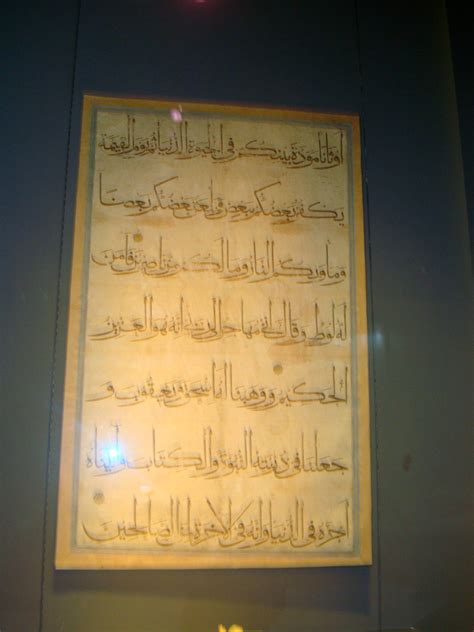 أوثانا مودة بينكم في الحيوة الدنيا ثم يوم القيمة
يكفر بعضكم ببعض ويلعن بعضكم بعضا
وماويكم النار وما لكم من ناصرين فامن
له لوط وقال اني مهاجر الى ربي انه هو العزيز
الحكيم ووهبنا له اسحق ويعقوب و
جعلنا في ذريته النبوة والكتاب واتيناه
اجره في الدنيا وانه في الاخرة لمن الصالحين